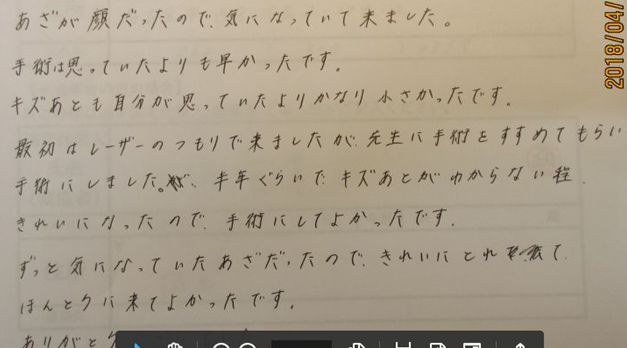 あざが顔だったので、気になっていて来ました。
2018/04/
手術は思っていたよりも早かったです。
キズあとも自分が思っていたよりかなり小さかったです。
最初はレーザーのつもりで来ましたが、先生に手術をすすめてもらい
手術にしました。が、半年ぐらいで、キズあとがわからない程、
きれいになったので、手術にしてよかったです。
ずっと気になっていたあざだったので、きれいにとれて、
ほんとうに来てよかったです。
ありがと